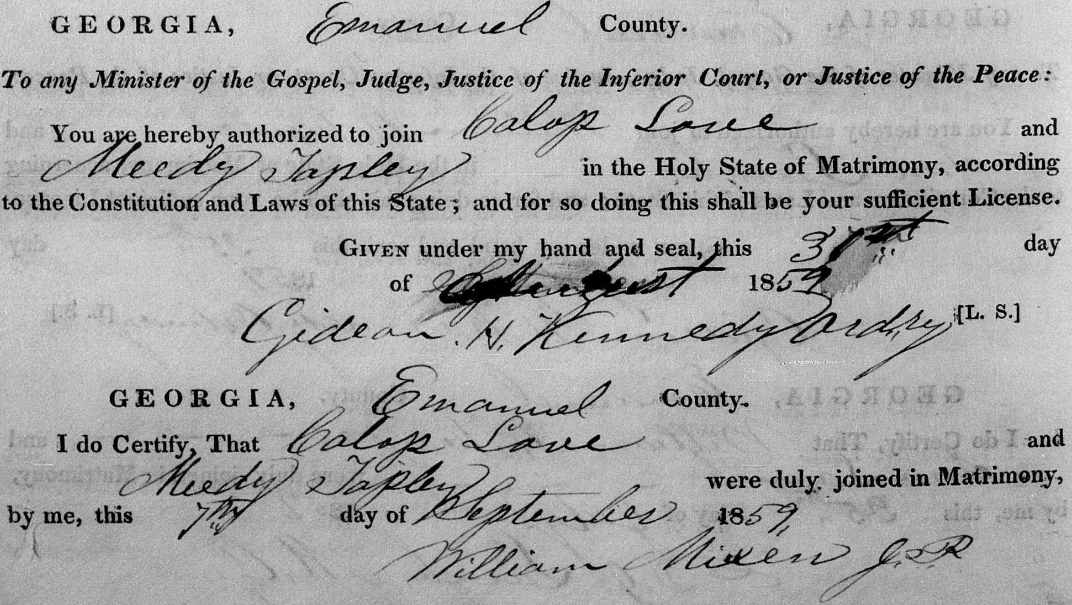 GEORGIA, Emanuel County.
To any Minister of the Gospel, Judge, Justice of the Inferior Court, or Justice of the Peace:
You are hereby authorized to join Calop Love and
Meedy Tapley in the Holy State of Matrimony, according
to the Constitution and Laws of this State; and for so doing this shall be your sufficient License.
GIVEN under my hand and seal, this 31st day
of August 1859
Gideon H. Kennedy Ordry [L. S.]
GEORGIA, Emanuel County.
I do Certify, That Calop Love and
Meedy Tapley were duly joined in Matrimony,
by me, this 7th day of September 1859,
William Mixen J.P